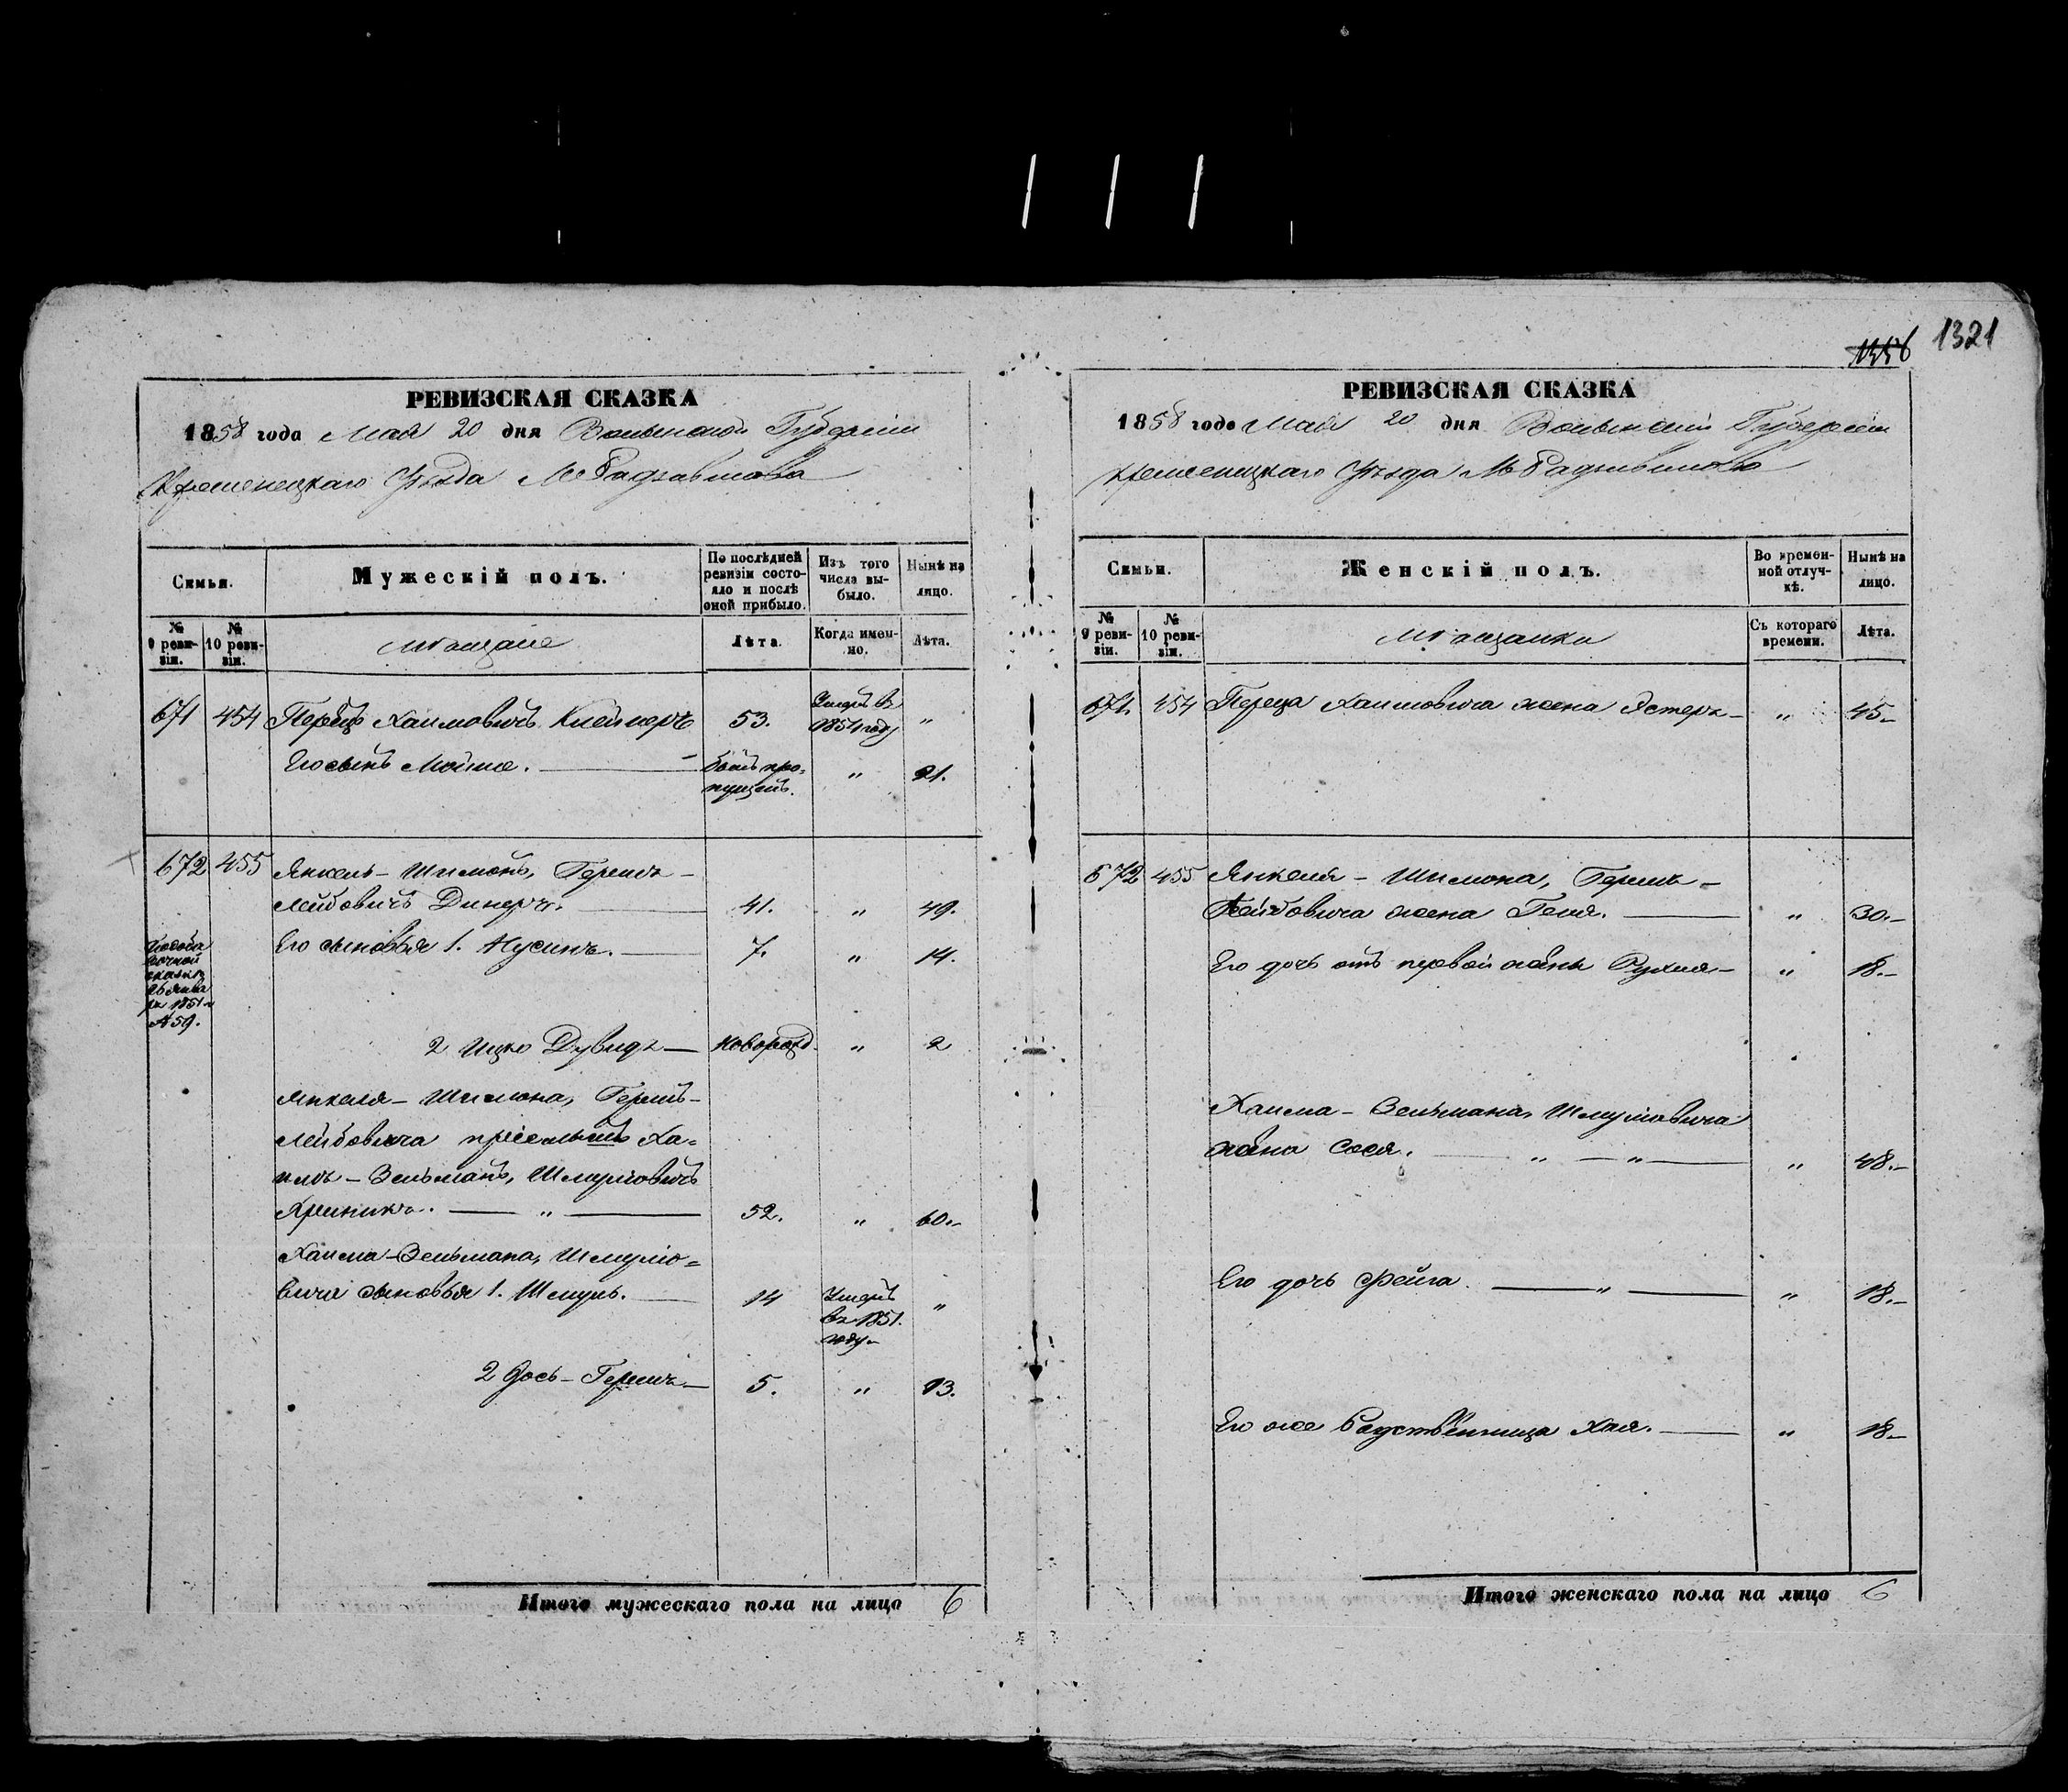 1356 1321
РЕВИЗСКАЯ СКАЗКА
1858 года Мая 20 дня Волынской Губернии
Кременецкаго Уѣзда М Радзивилова
Семьи.
Мужескій полъ.
По послѣдней ревизіи состояло и послѣ оной прибыло.
Изъ того числа выбыло.
Нынѣ на лицо.
№ 9 ревизіи.
№ 10 ревизіи.
Мѣщане
Лѣта.
Когда именно.
Лѣта.
671 454 Перецъ Хаимовичъ Клейнеръ 53. Умеръ въ 1851 году "
Его сынъ Мойше. былъ пропущенъ. " 21.
672 455 Янкель-Шимонъ, Гершъ-
Лейбовичъ Динеръ. 41. " 49.
Его сыновья 1. Нусинъ. 7. " 14.
сказкѣ
1851
№ 59.
2 Ицко Дувидъ новорожд. " 2
Янкеля-Шимона, Гершъ-
Лейбовича Ха-
имъ-Зельманъ, Шмулiовичъ
" 52. " 60.
Хаима-Зельмана, Шмуліо-
вича сыновья 1. Шмуль. 14 Умеръ въ 1851. году "
2 Іось-Гершъ 5. " 13.
Итого мужескаго пола на лицо 6
РЕВИЗСКАЯ СКАЗКА
1858 года Мая 20 дня Волынской Губерніи
Кременецкаго Уѣзда М Радзивилова
Семьи.
Женскій полъ.
Во временной отлучкѣ.
Нынѣ на лицо.
№ 9 ревизіи.
№ 10 ревизіи.
Мѣщанки
Съ котораго времени.
Лѣта.
671. 454 Переца Хаимовича жена Эстеръ " 45.
672 455 Янкеля-Шимона, Гершъ-
Лейбовича жена Геня. " 30.
Его дочь отъ первой жены Рухля " 18.
Хаима-Зельмана, Шмуліовича
жена Сося. " " " 48.
Его дочь Фейга. " " 18.
Его же родственница Хая. " 18.
Итого женскаго пола на лицо 6